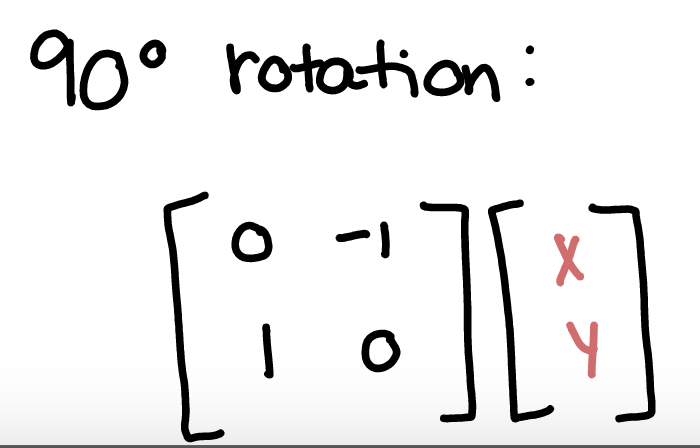 90° rotation:
[ 0 -1 ] [ x ]
[ 1 0 ] [ y ]